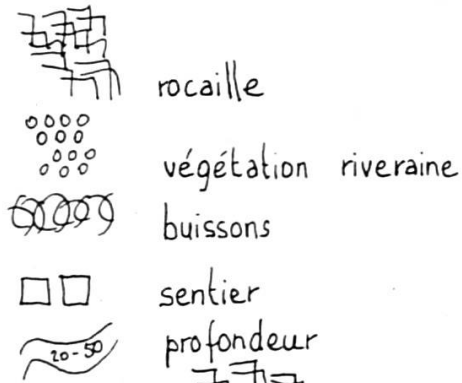 rocaille
végétation riveraine
buissons
sentier
20-50 profondeur